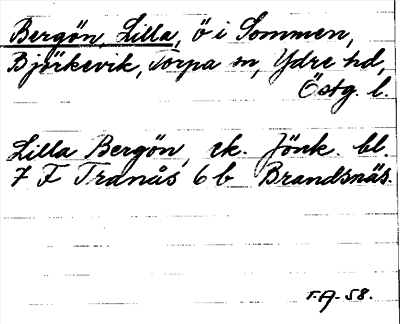 Bergön, Lilla, ö i Sommen,
Björkevik, Torpa sn, Ydre hd,
Östg. l.
Lilla Bergön, ek. Jönk. bl.
7 F Tranås 6 b Brandsnäs.
T.A-58.